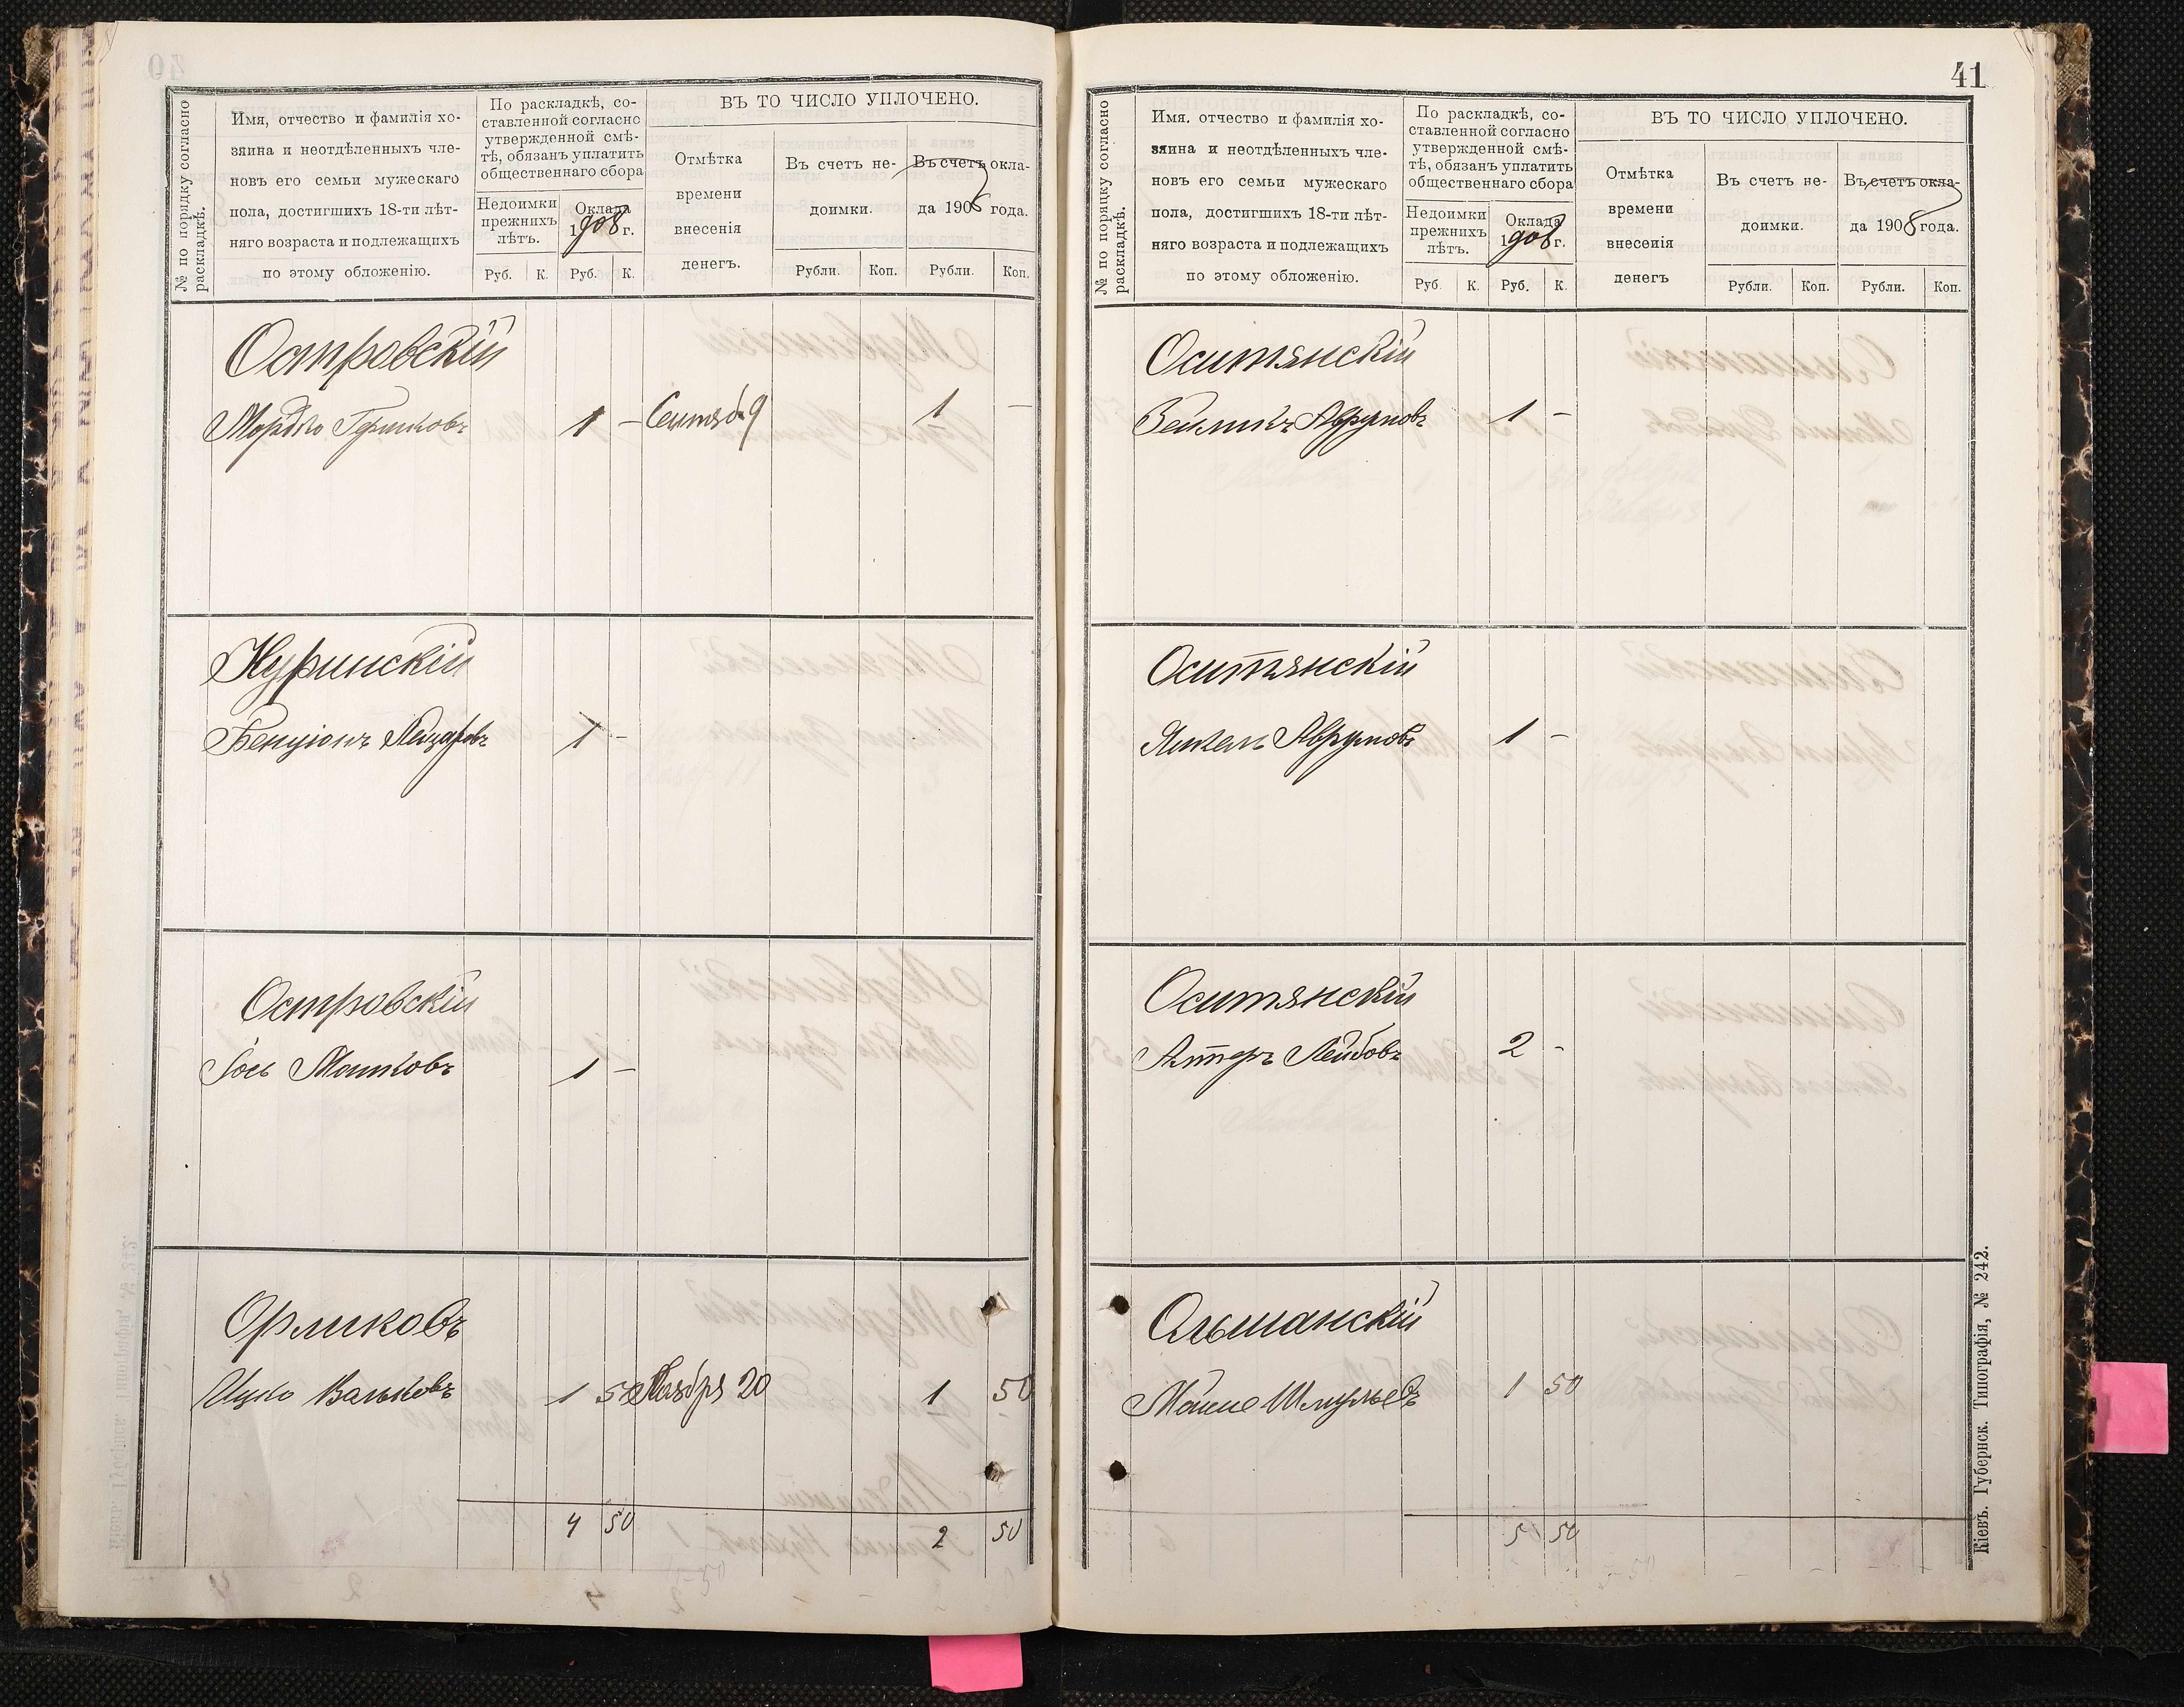 № по порядку согласно раскладкѣ.
Имя, отчество и фамилія хо-
зяина и неотдѣленныхъ чле-
новъ его семьи мужескаго
пола, достигшихъ 18-ти лѣт-
няго возраста и подлежащихъ
по этому обложенію.
По раскладкѣ, со-
ставленной согласно
утвержденной смѣ-
тѣ, обязанъ уплатить
общественнаго сбора
Недоимки прежнихъ лѣтъ.
Оклада 1908 г.
Руб. К. Руб. К.
ВЪ ТО ЧИСЛО УПЛОЧЕНО.
Отмѣтка времени внесенія денегъ.
Въ счетъ не-
доимки.
Въ счетъ окла-
да 1908 года.
Рубли. Коп. Рубли. Коп.
Островскій
Мордко Гершковъ 1 — Сентяб 9 1 —
Куринскій
Бенціонъ Лейзаровъ 1 -
Островскій
Іось Машковъ 1 —
Орликовъ
Ицко Вольковъ 1 50 Ноября 20 1 50
4 50 2 50
41
№ по порядку согласно раскладкѣ.
Имя, отчество и фамилія хо-
зяина и неотдѣленныхъ чле-
новъ его семьи мужескаго
пола, достигшихъ 18-ти лѣт-
няго возраста и подлежащихъ
по этому обложенію.
По раскладкѣ, со-
ставленной согласно
утвержденной смѣ-
тѣ, обязанъ уплатить
общественнаго сбора
Недоимки прежнихъ лѣтъ.
Оклада 1908 г.
Руб. К. Руб. К.
ВЪ ТО ЧИСЛО УПЛОЧЕНО.
Отмѣтка времени внесенія денегъ
Въ счетъ не-
доимки.
Въ счетъ окла-
да 1908 года.
Рубли. Коп. Рубли. Коп.
Оситянскій
Зейликъ Аврумовъ 1 —
Оситянскій
Янкель Аврумовъ 1 —
Оситянскій
Алтеръ Лейбовъ 2 -
Ольшанскій
Мошко Шмулевъ 1 50
5 50
Кіевъ. Губернск. Типографія, № 242.